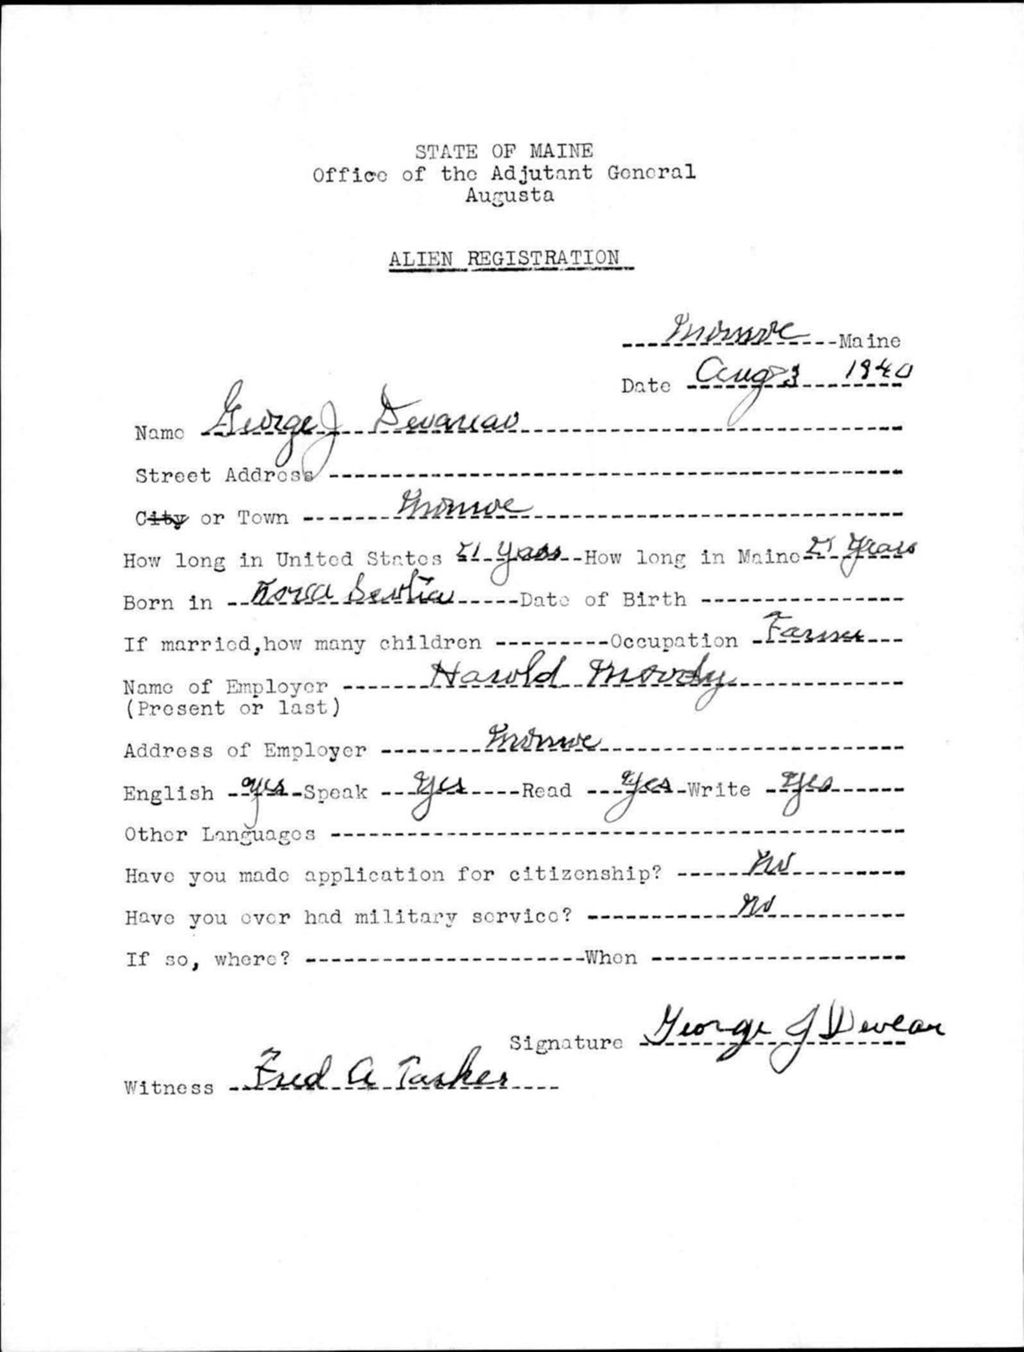 STATE OF MAINE
Office of the Adjutant General
Augusta
ALIEN REGISTRATION
Monroe Maine
Date Aug 3 1940
Name George J
Street Address
City or Town Monroe
How long in United States years How long in Maine years
Born in Nova Scotia Date of Birth
If married, how many children Occupation Farmer
Name of Employer Harold Moody
(Present or last)
Address of Employer Monroe
English yes Speak yes Read yes Write yes
Other Languages
Have you made application for citizenship? no
Have you ever had military service? no
If so, where? When
Signature George J
Witness Fred A Tasker